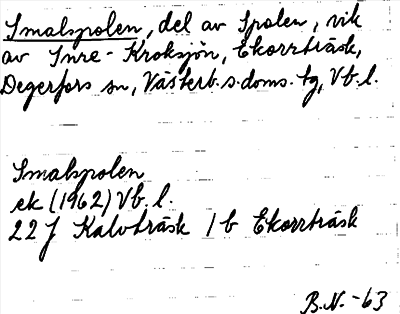 Smalspolen, del av Spolen, vik
av Inre-Kroksjön, Ekorrträsk,
Degerfors sn, Västerb.s.doms.tg, Vb.l.
Smalspolen
ek (1962) Vb.l.
22J Kalvträsk 1b Ekorrträsk
B.N.-63